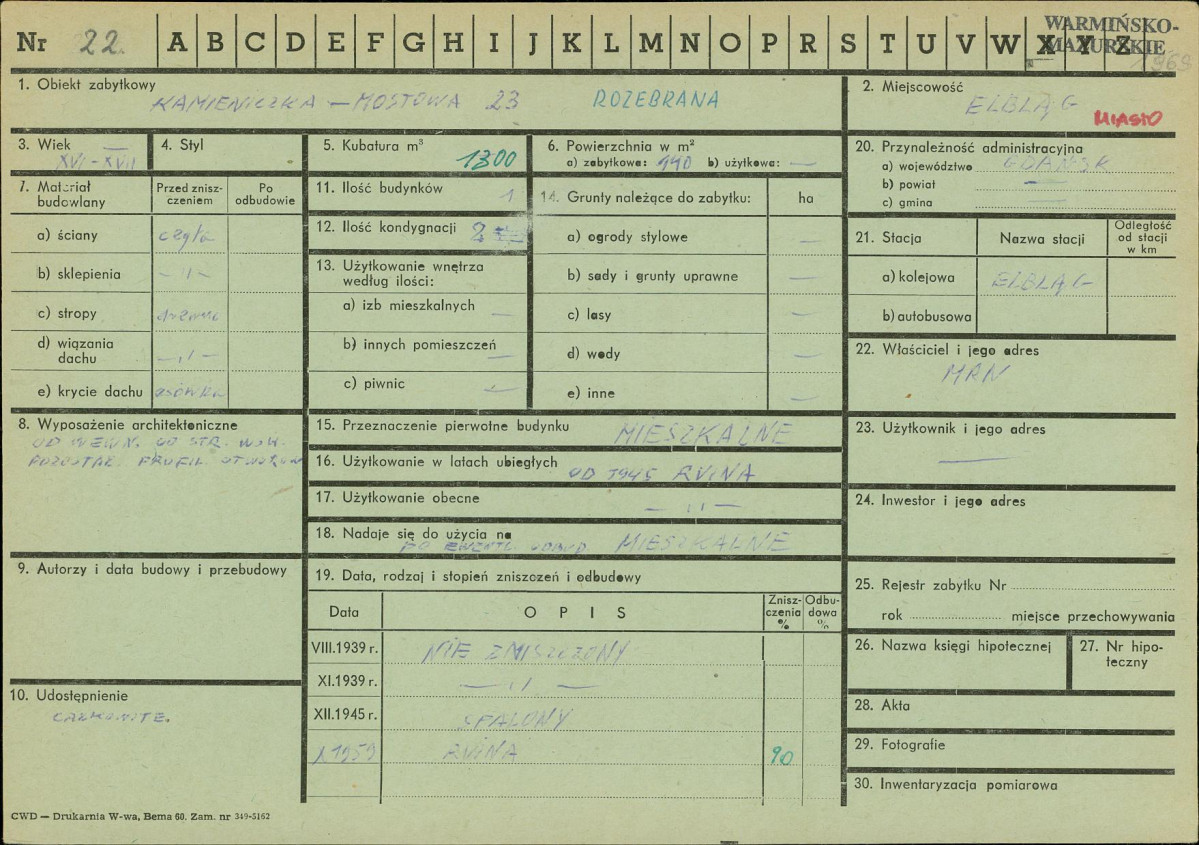 Nr 22. A B C D E F G H I J K L M N O P R S T U V W X Y Z
WARMIŃSKO-
MAZURSKIE
1969
1. Obiekt zabytkowy
KAMIENICZKA – MOSTOWA 23 ROZEBRANA
2. Miejscowość
ELBLĄG
MIASTO
3. Wiek —
XVI - XVII
4. Styl
5. Kubatura m³
1300
6. Powierzchnia w m²
a) zabytkowa: 440 b) użytkowa: —
20. Przynależność administracyjna
a) województwo GDAŃSK
b) powiat —
c) gmina —
7. Materiał budowlany
Przed zniszczeniem
Po odbudowie
a) ściany cegła
b) sklepienia — ıı —
c) stropy drzewo
d) wiązania dachu — ıı —
e) krycie dachu
11. Ilość budynków 1
12. Ilość kondygnacji 2
13. Użytkowanie wnętrza
według ilości:
a) izb mieszkalnych —
b) innych pomieszczeń —
c) piwnic —
14. Grunty należące do zabytku: ha
a) ogrody stylowe —
b) sady i grunty uprawne —
c) lasy —
d) wody —
e) inne —
21. Stacja
Nazwa stacji
Odległość
od stacji
w km
a) kolejowa ELBLĄG
b) autobusowa
22. Właściciel i jego adres
MRN
8. Wyposażenie architektoniczne
OD WEWN. OD STR. WSW.
POZOSTAŁ. PROFIL. OTWORÓW
15. Przeznaczenie pierwotne budynku MIESZKALNE
16. Użytkowanie w latach ubiegłych
OD 1945 RUINA
17. Użytkowanie obecne
— ıı —
18. Nadaje się do użycia na
PO EWENT. ODBUD. MIESZKALNE
23. Użytkownik i jego adres
—
24. Inwestor i jego adres
9. Autorzy i data budowy i przebudowy
19. Data, rodzaj i stopień zniszczeń i odbudowy
Data
O P I S
Zniszczenia %
Odbudowa %
VIII.1939 r. NIE ZNISZCZONY
XI.1939 r. — ıı —
XII.1945 r. SPALONY
X 1959 RUINA 90
25. Rejestr zabytku Nr
rok miejsce przechowywania
26. Nazwa księgi hipotecznej
27. Nr hipoteczny
10. Udostępnienie
CAŁKOWITE.
28. Akta
29. Fotografie
30. Inwentaryzacja pomiarowa
CWD — Drukarnia W-wa, Bema 60. Zam. nr 349-5162